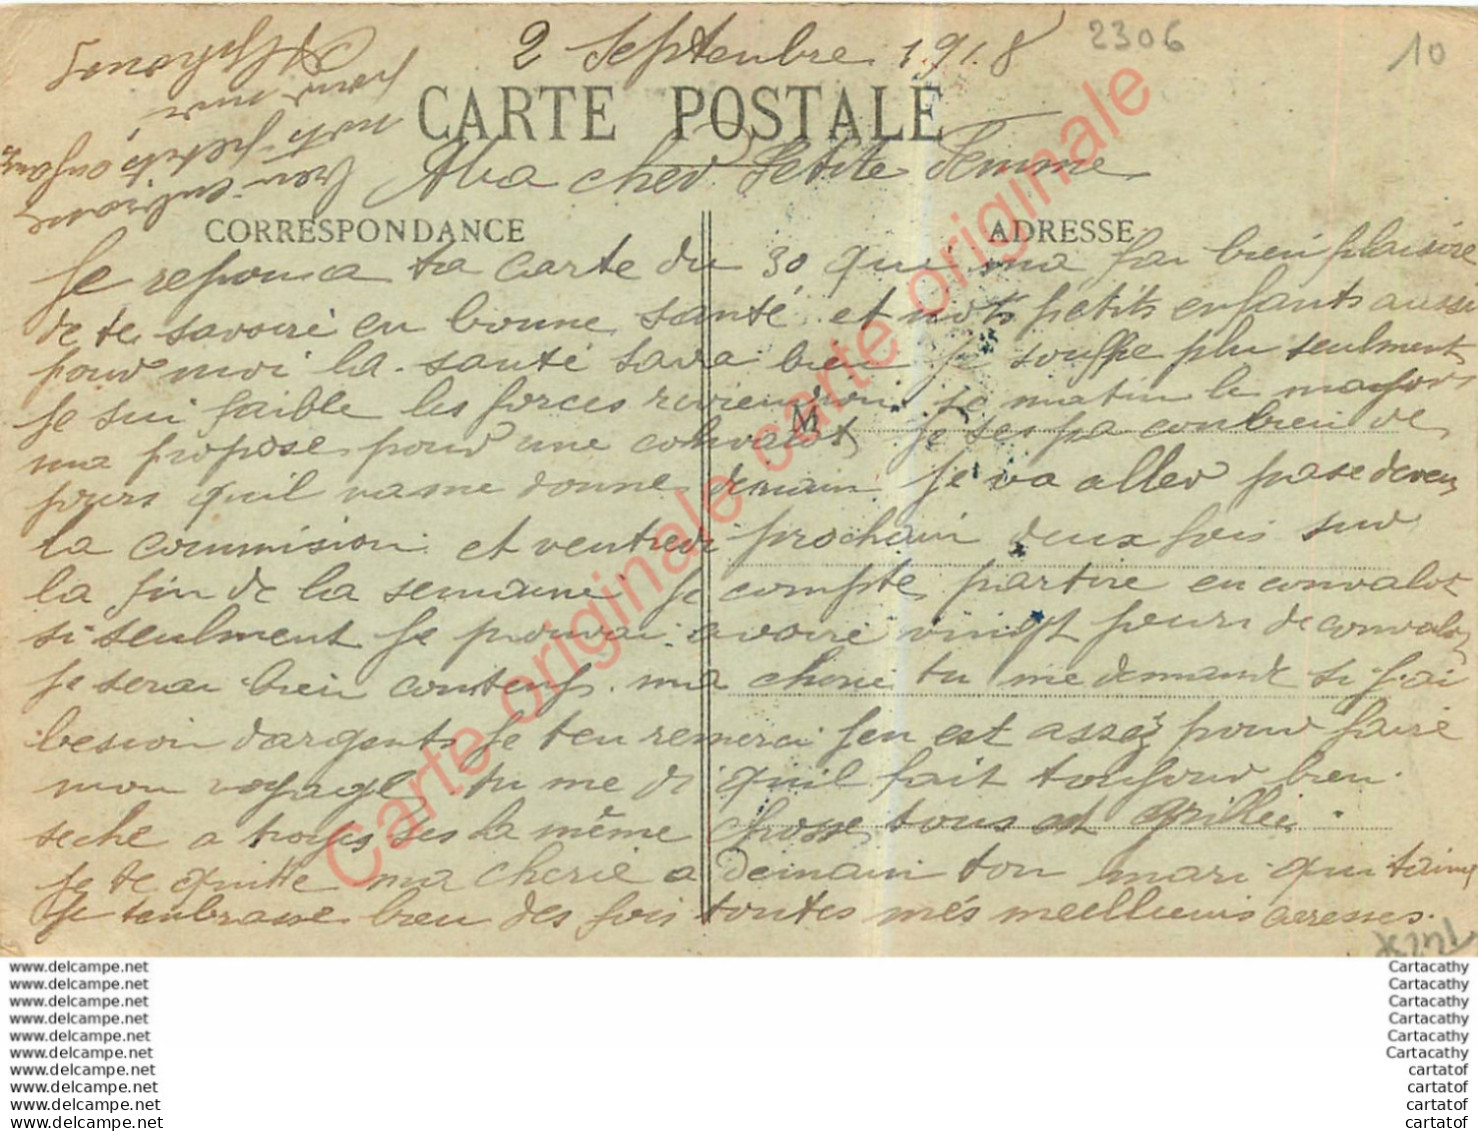 2 Septenbre 1918
2306
10
CARTE POSTALE
Ma cher Petite Femme
CORRESPONDANCE
ADRESSE
Je repon a ta carte du 30 qui ma fai bien plaisire
de te savoire en bonne santé et nots petits enfants aussi
pour moi la santé sava bien je souffre plu seulment
je sui faible les forces reviendron se matin le mayors
ma propose pour une convalot je ses pa conbien de
jours quil vasme donne demain je va aller pase deven
la commision et ventredi prochain deux fois sur
la fin de la semaine je compte partire en convalot
si seulment je pouvai avoire vingt jours de convalot
je serai bien contens ma cherie tu me demande si j'ai
besion dargents je ten remerci jen est assez pour faire
mon voyage tu me di quil fait toujour bien
seche a troyes ses la même chosse tous est grillei
je te quitte ma cherie a demain ton mari qui taime
Je tenbrasse bien des fois toutes més meillieurs caresses.
bien enbrasse
nots petits enfants
pour moi
M
Carte originale carte originale
www.delcampe.net
www.delcampe.net
www.delcampe.net
www.delcampe.net
www.delcampe.net
www.delcampe.net
www.delcampe.net
www.delcampe.net
www.delcampe.net
www.delcampe.net
Cartacathy
Cartacathy
Cartacathy
Cartacathy
Cartacathy
Cartacathy
cartatof
cartatof
cartatof
cartatof